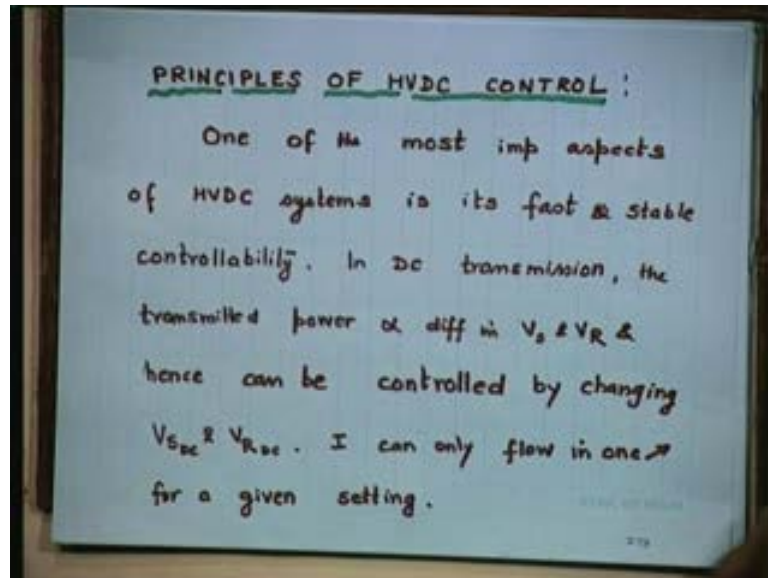 PRINCIPLES OF HVDC CONTROL :
One of the most imp aspects
of HVDC systems is its fast & stable
controllability. In DC transmission, the
transmitted power α diff in Vs & VR &
hence can be controlled by changing
VSDC & VRDC. I can only flow in one →
for a given setting.